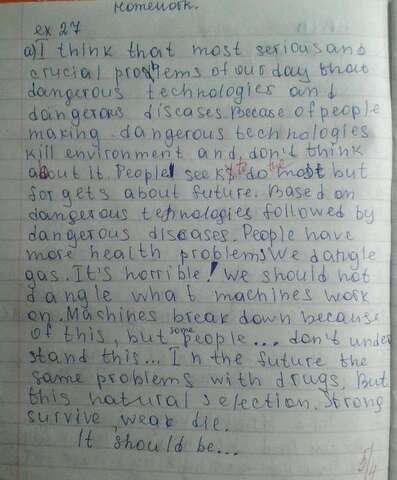 Homework.
ex 27
a) I think that most serious and
crucial problems of our day that
dangerous technologies and
dangerous discases. Becase of people
making dangerous technologies
kill environment and, don't think
about it. People seek to do the most but
for gets about future. Based on
dangerous technologies followed by
dangerous discases. People have
more health problems we dangle
gas. It's horrible! We should not
dangle what machines work
on. Mashines break down because
of this, but some people... don't under
stand this... In the future the
same problems with drugs. But
this natural selection. Strong
survive, weak die.
It should be...
5/4